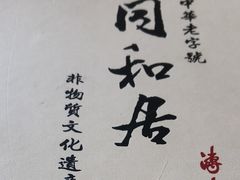 中華老字號
同和居
非物質文化遺